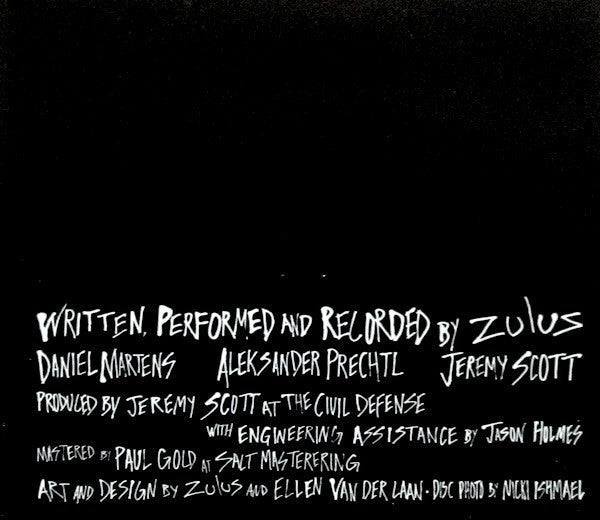 WRITTEN, PERFORMED AND RECORDED BY ZULUS
DANIEL MARTENS ALEKSANDER PRECHTL JEREMY SCOTT
PRODUCED BY JEREMY SCOTT AT THE CIVIL DEFENSE
WITH ENGWEERING ASSISTANCE BY JASON HOLMES
MASTERED BY PAUL GOLD AT SALT MASTERERING
ART AND DESIGN BY ZULUS AND ELLEN VAN DER LAAN · DISC PHOTO BY NICKI ISHMAEL